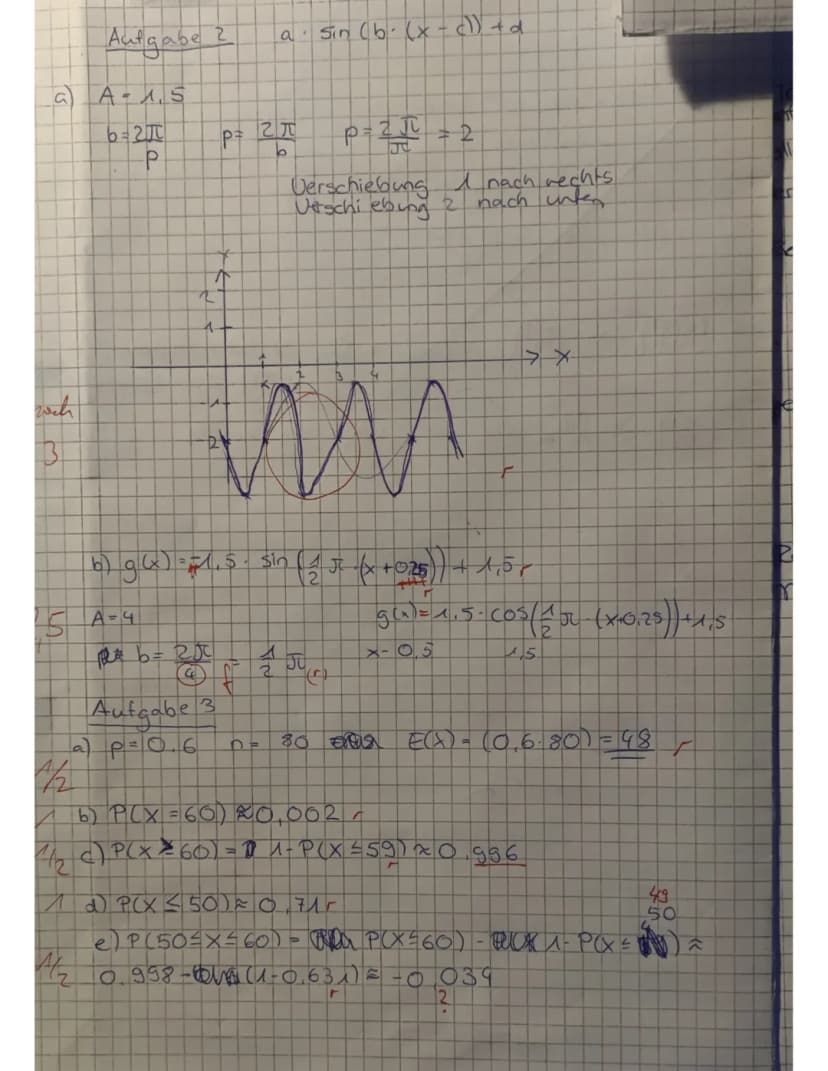 Aufgabe 2 a · sin(b · (x - c)) + d
a) A = 1,5
b = 2π/p p = 2π/b p = 2π/π = 2
Verschiebung 1 nach rechts
Verschiebung 2 nach unten
y
2
1
x
1 2 3 4
-1
-2
3
r
b) g(x) = -1,5 · sin(1/2 π (x+0,25)) + 1,5 r
r
,5 A = 4 g(x) = 1,5 · cos(1/2 π - (x+0,25)) + 1,5
b = 2π/4 = 1/2 π (r) x - 0,5 1,5
f
Aufgabe 3
a) p = 0.6 n = 80 E(X) = (0,6·80) = 48 r
1/2
1 b) P(X = 60) ≈ 0,002 r
1/2 c) P(X ≥ 60) = 1 - P(X ≤ 59) ≈ 0.996
r
1 d) P(X ≤ 50) ≈ 0,71 r
49
50
e) P(50 ≤ X ≤ 60) = P(X ≤ 60) - 1 - P(X ≤ ) ≈
1/2 0.998 - (1 - 0,631) ≈ -0,034
r ?